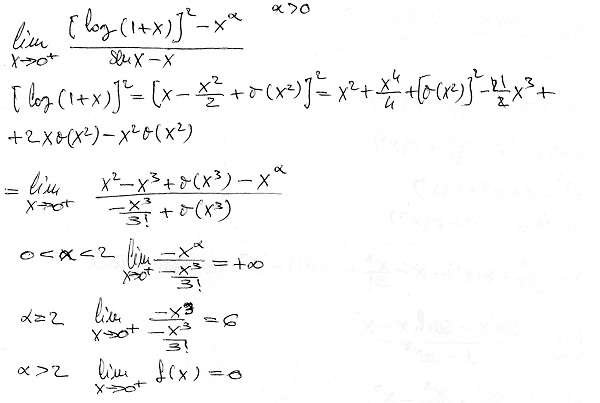 lim x→0⁺ ([log(1+x)]² − x^α)/(sen x − x)    α>0
[log(1+x)]² = [x − x²/2 + o(x²)]² = x² + x⁴/4 + [o(x²)]² − 2·1/2 x³ +
+ 2x o(x²) − x² o(x²)
= lim x→0⁺ (x² − x³ + o(x³) − x^α)/(−x³/3! + o(x³))
0<α<2 lim x→0⁺ (−x^α)/(−x³/3!) = +∞
α=2 lim x→0⁺ (−x³)/(−x³/3!) = 6
α>2 lim x→0⁺ f(x) = 0